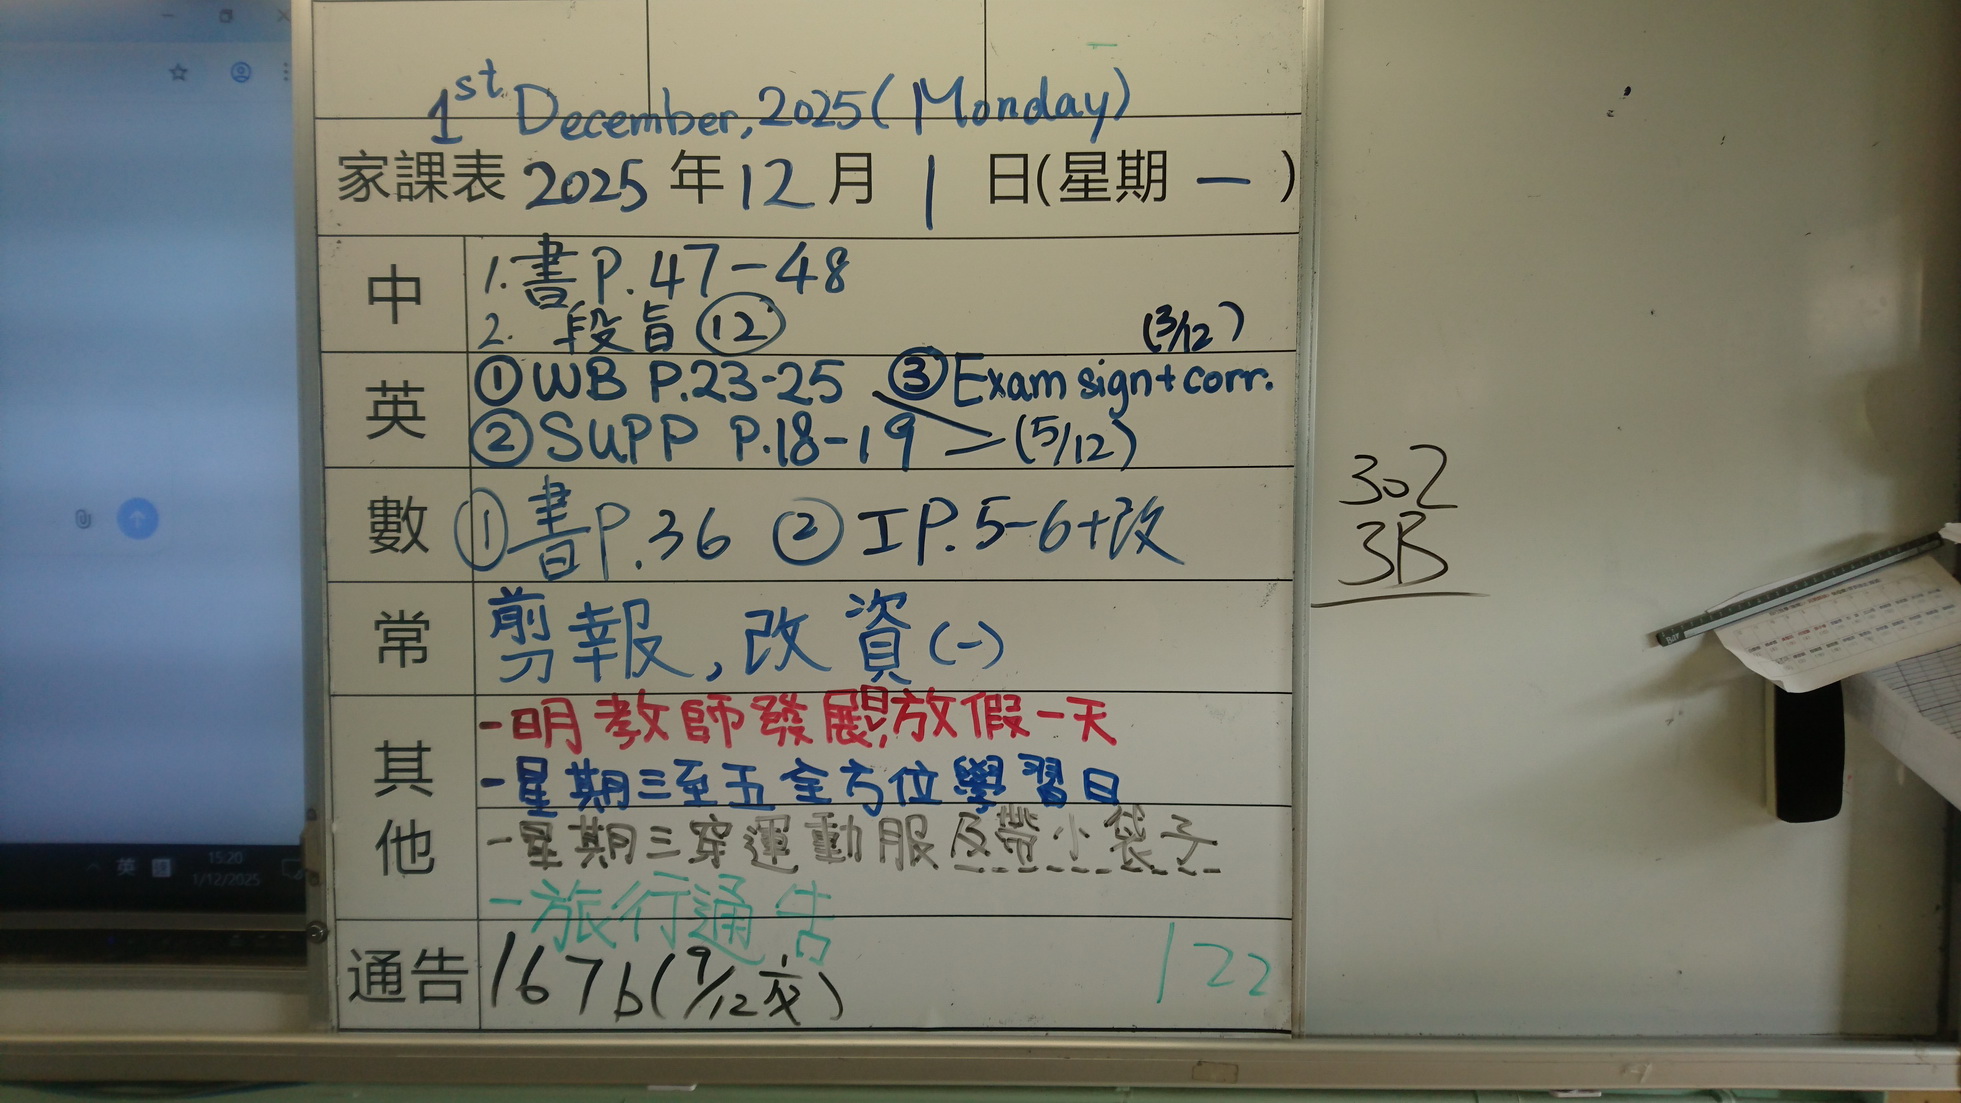 1st December, 2025 (Monday)
家課表 2025 年 12 月 1 日(星期 一 )
中
1. 書 P. 47-48
2. 段旨 ⑫
(3/12)
英
① WB P.23-25 ③ Exam sign + corr.
② SUPP P.18-19 (5/12)
數
① 書 P. 36 ② IP. 5-6+改
常
剪報, 改資(一)
其他
-明教師發展日,放假一天
-星期三至五全方位學習日
-星期三穿運動服及帶小袋子
-旅行通告
通告
167b (9/12交)
122
302
3B
英
15:20
1/12/2025